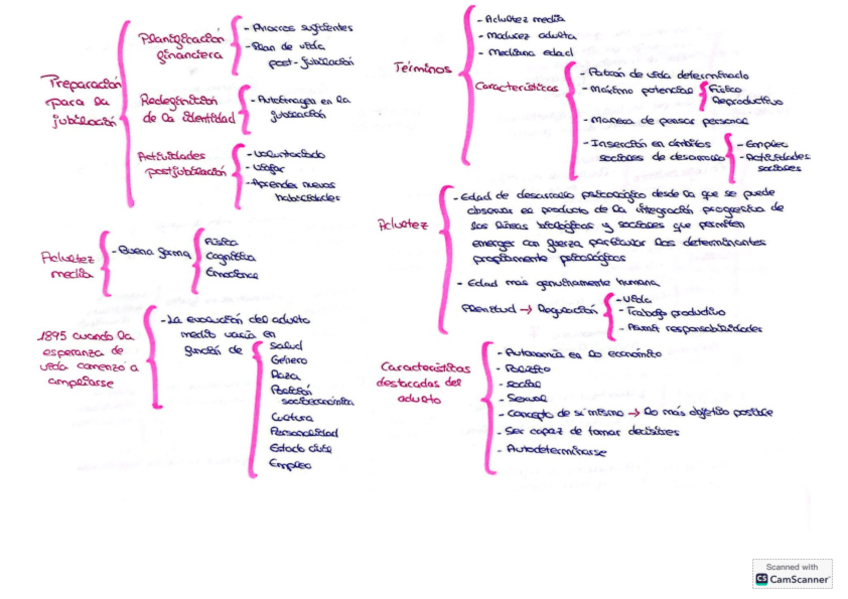 Preparación
para la
jubilación
Planificación
financiera
- Ahorros suficientes
- Plan de vida
post-jubilación
Redefinición
de la identidad
- Autoimagen en la
jubilación
Actividades
postjubilación
- Voluntariado
- Viajar
- Aprender nuevas
habilidades
Adultez
media
- Buena forma
Física
Cognitiva
Emocional
1895 cuando la
esperanza de
vida comenzó a
ampliarse
- La evolución del adulto
medio varía en
función de
Salud
Género
Raza
Posición
socioeconómica
Cultura
Personalidad
Estado civil
Empleo
Términos
- Adultez media
- Madurez adulta
- Mediana edad
Características
- Patrón de vida determinado
- Máximo potencial
Físico
Reproductivo
- Manera de pensar personal
- Inserción en ámbitos
sociales de desarrollo
- Empleo
- Actividades
sociales
Adultez
- Edad de desarrollo psicológico desde la que se puede
observar el producto de la integración progresiva de
las líneas biológicas y sociales que permiten
emerger con fuerza particular los determinantes
propiamente psicológicos
- Edad más genuinamente humana
Plenitud → Regulación
- Vida
- Trabajo productivo
- Asumir responsabilidades
Características
destacadas del
adulto
- Autonomía en lo económico
- Político
- Social
- Sexual
- Concepto de sí mismo → lo más objetivo posible
- Ser capaz de tomar decisiones
- Autodeterminarse
Scanned with
CS CamScanner